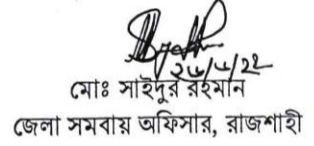 মোঃ সাইদুর রহমান
জেলা সমবায় অফিসার, রাজশাহী